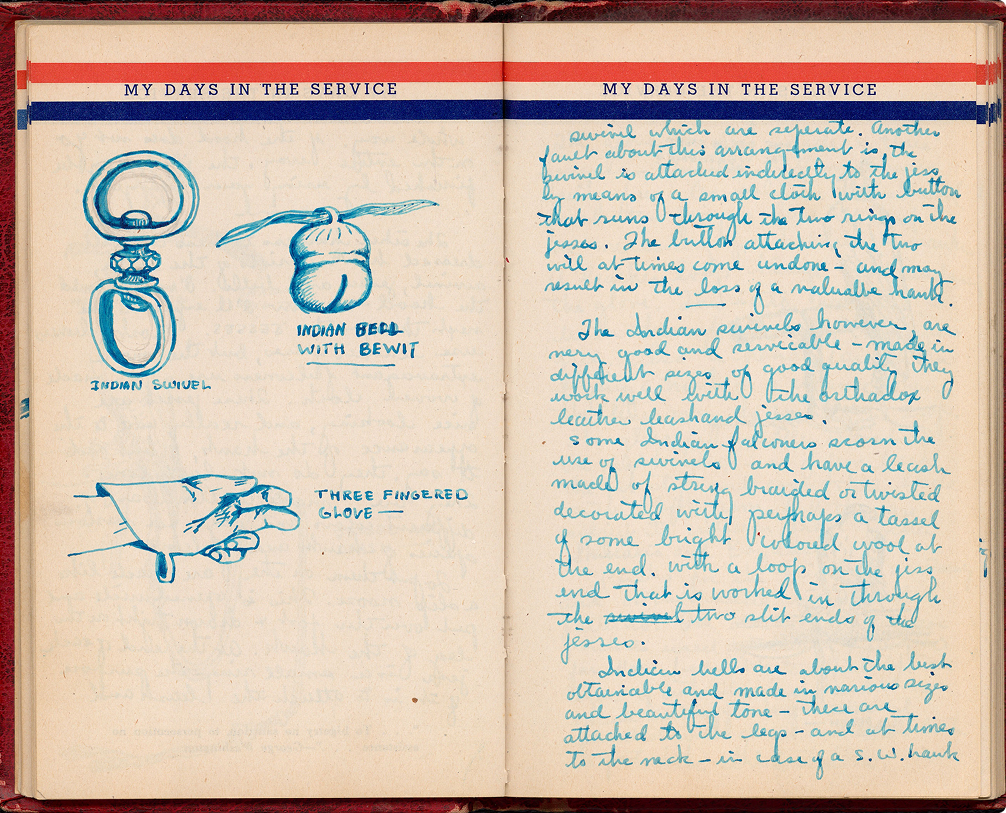 MY DAYS IN THE SERVICE
INDIAN SWIVEL
INDIAN BELL
WITH BEWIT
THREE FINGERED
GLOVE —
MY DAYS IN THE SERVICE
swivel which are seperate. Another
fault about this arrangement is, the
swivel is attached indirectly to the jess
by means of a small cloth with button
that runs through the two rings on the
jesses. The button attaching the two
will at times come undone – and may
result in the loss of a valualbe hawk.
The Indian swivels however, are
very good and servicable – made in
different sizes of good quality they
work well with the orthadox
leather leashand jesses.
Some Indian falconers scorn the
use of swivels and have a leash
made of string braided or twisted
decorated with perhaps a tassel
of some bright colored wool at
the end. with a loop on the jess
end that is worked in through
the swivel two slit ends of the
jesses.
Indian bells are about the best
obtainable and made in various sizes
and beautiful tone – these are
attached to the legs – and at times
to the neck – in case of a S. W. hawk